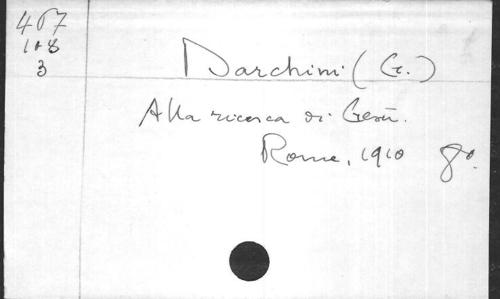 467
108
3
Darchini (G.)
Alla ricerca di Gesù.
Rome, 1910 8º.